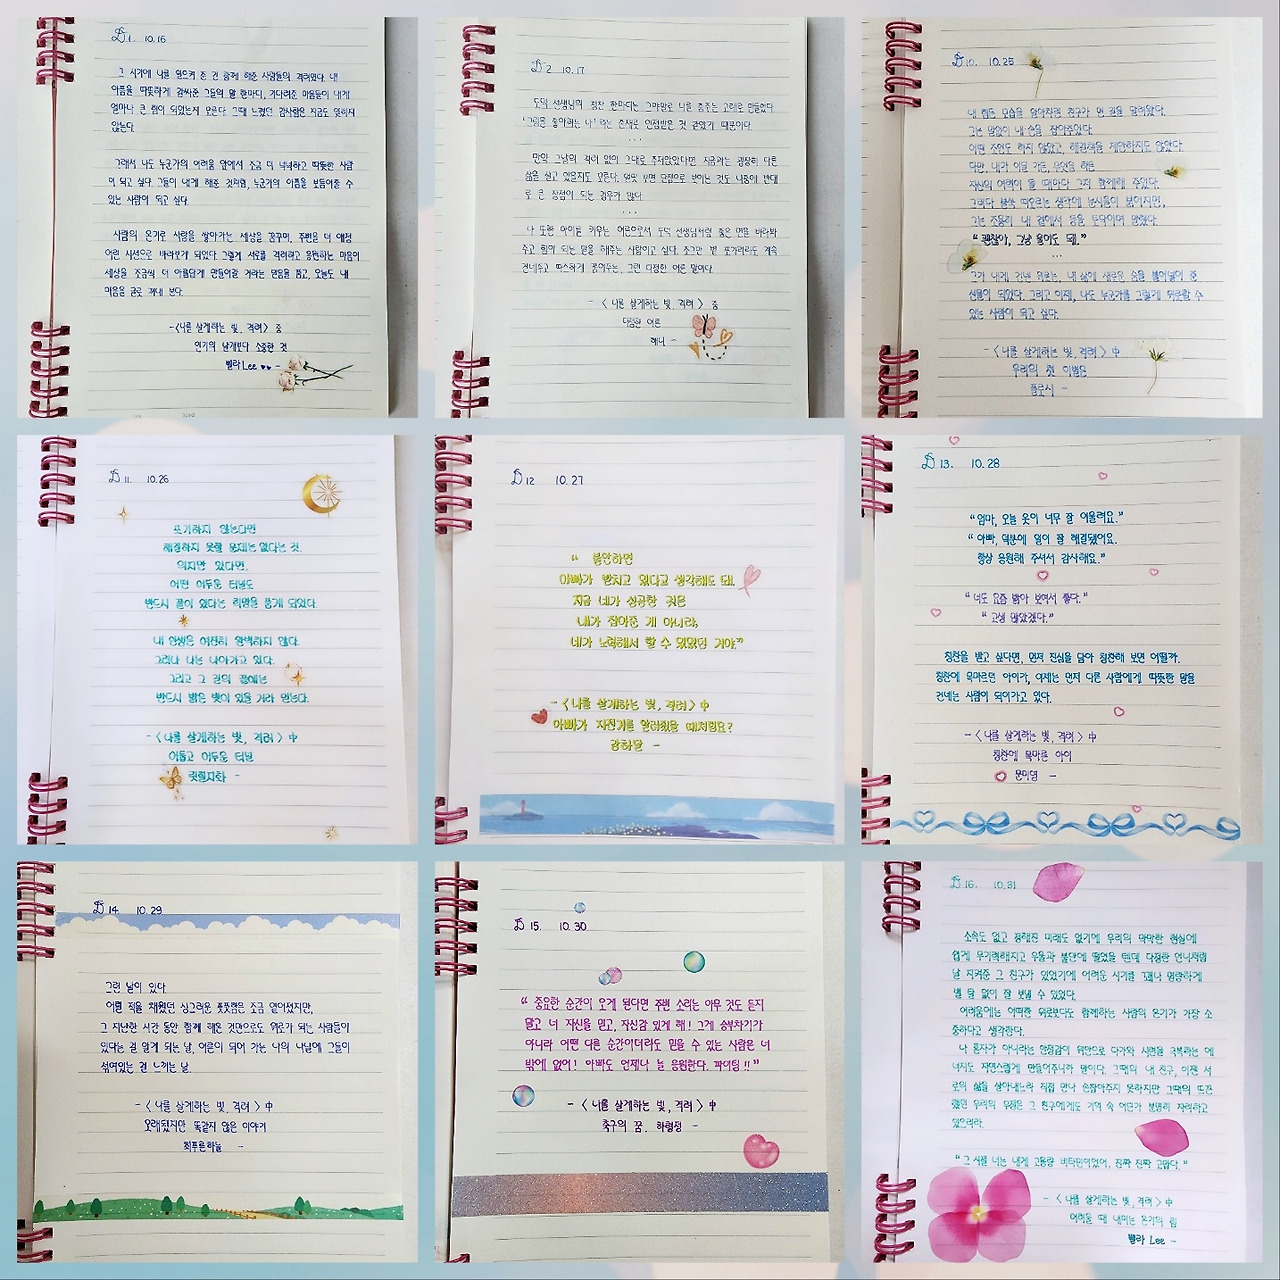 D1. 10.16
그 시기에 나를 일으켜 준 건 함께 해준 사람들의 격려였다. 내
마음을 따뜻하게 감싸준 그들의 말 한마디, 기다려준 마음들이 내게
얼마나 큰 힘이 되었는지 모른다. 그때 느꼈던 감사함은 지금도 잊혀지지
않는다.
그래서 나도 누군가의 어려움 앞에서 조금 더 넉넉하고 따뜻한 사람
이 되고 싶다. 그들이 내게 해준 것처럼, 누군가의 아픔을 보듬어줄 수
있는 사람이 되고 싶다.
사람의 온기로 사랑을 쌓아가는 세상을 꿈꾸며, 주변을 더 애정
어린 시선으로 바라보게 되었다. 그렇게 서로를 격려하고 응원하는 마음이
세상을 조금씩 더 아름답게 만들어갈 거라는 믿음을 품고, 오늘도 내
마음을 글로 꺼내 본다.
-<나를 살게하는 빛, 격려> 중
연기의 날개보다 소중한 것
벨라 Lee ♥♥ -
D2 10.17
도덕 선생님의 칭찬 한마디는 그야말로 나를 춤추는 고래로 만들었다.
'그림을 좋아하는 나'라는 존재로 인정받은 것 같았기 때문이다.
...
만약 그날의 격려 없이 그대로 주저앉았다면 지금과는 굉장히 다른
삶을 살고 있을지도 모른다. 얼핏 보면 단점으로 보이는 것도 나중에 반대
로 큰 장점이 되는 경우가 많다.
...
나 또한 아이를 키우는 어른으로서 도덕 선생님처럼 좋은 면을 바라봐
주고 힘이 되는 말을 해주는 사람이고 싶다. 조그만 별 포기리라도 계속
건네주고 따스하게 품어주는, 그런 다정한 어른 말이다.
- <나를 살게하는 빛, 격려> 중
다정한 어른
해니 -
D10. 10.25
내 힘든 모습을 알아차린 친구가 먼 길을 달려왔다.
그는 말없이 내 손을 잡아주었다.
어떤 조언도 하지 않았고, 해결책을 제안하지도 않았다.
다만, 내가 어딜 가든, 무엇을 하든
자신의 여력이 될 때마다 그저 함께해 주었다.
그러다 불쑥 떠오르는 생각에 눈시울이 붉어지면,
그는 조용히 내 곁에서 등을 토닥이며 말했다.
"괜찮아, 그냥 울어도 돼."
...
그가 내게 건넨 위로는, 내 삶에 새로운 숨을 불어넣어 준
선물이 되었다. 그리고 이제, 나도 누군가를 그렇게 위로할 수
있는 사람이 되고 싶다.
- <나를 살게하는 빛, 격려> 中
우리의 첫 이별은
플로시 -
D11. 10.26
포기하지 않는다면
해결하지 못할 문제는 없다는 것.
의지만 있다면,
어떤 어두운 터널도
반드시 끝이 있다는 희망을 품게 되었다.
내 인생은 여전히 완벽하지 않다.
그러나 나는 나아가고 있다.
그리고 그 길의 끝에는
반드시 밝은 빛이 있을 거라 믿는다.
- <나를 살게하는 빛, 격려> 中
어둡고 어두운 터널
릿릴리화 -
D12 10.27
"불안하면
아빠가 받치고 있다고 생각해도 돼.
지금 네가 성공한 것은
내가 잡아준 게 아니라,
네가 노력해서 할 수 있었던 거야"
- <나를 살게하는 빛, 격려> 中
아빠가 자전거를 알려줬을 때처럼요?
강하달 -
D13. 10.28
"엄마, 오늘 옷이 너무 잘 어울려요."
"아빠, 덕분에 일이 잘 해결됐어요.
항상 응원해 주셔서 감사해요."
"너도 요즘 밝아 보여서 좋다."
"고생 많았겠다."
칭찬을 받고 싶다면, 먼저 진심을 담아 칭찬해 보면 어떨까.
칭찬에 목마르던 아이가, 이제는 먼저 다른 사람에게 따뜻한 말을
건네는 사람이 되어가고 있다.
- <나를 살게하는 빛, 격려> 中
칭찬에 목마른 아이
문미영 -
D14. 10.29
그런 날이 있다
어릴 적을 채웠던 싱그러운 풋풋함은 조금 옅어졌지만,
그 지난한 시간 동안 함께 해온 것만으로도 위로가 되는 사람들이
있다는 걸 알게 되는 날, 어른이 되어 가는 나의 나날에 그들이
섞여있는 걸 느끼는 날
- <나를 살게하는 빛, 격려> 中
오래됐지만 똑같지 않은 이야기
최푸른하늘 -
D15. 10.30
"중요한 순간이 오게 된다면 주변 소리는 아무 것도 듣지
말고 너 자신을 믿고, 자신감 있게 해! 그게 승부차기가
아니라 어떤 다른 순간이더라도 믿을 수 있는 사람은 너
밖에 없어! 아빠도 언제나 늘 응원한다. 파이팅!!"
- <나를 살게하는 빛, 격려> 中
축구의 꿈, 하형정 -
D16. 10.31
소속도 없고 정해진 미래도 없기에 우리의 막막한 현실에
쉽게 무기력해지고 우울과 불안에 떨었을 텐데 다정한 언니처럼
날 지켜준 그 친구가 있었기에 어려운 시기를 꽤나 명랑하게
별 탈 없이 잘 보낼 수 있었다.
어려움에는 어떠한 위로보다도 함께하는 사람의 온기가 가장 소
중하다고 생각한다.
나 혼자가 아니라는 안정감이 위안으로 다가와 시련을 극복하는 에
너지도 자연스럽게 만들어주니까 말이다. 그때의 내 친구, 이젠 서
로의 삶을 살아내느라 직접 만나 손잡아주지 못하지만 그때의 뜨끈
했던 우리의 우정은 그 친구에게도 기억 속 어딘가 분명히 자리하고
있으리라.
"그 시절 너는 내게 고용량 비타민이었어, 진짜 진짜 고맙다."
- <나를 살게하는 빛, 격려> 中
어려울 때 내미는 온기의 힘
벨라 Lee -